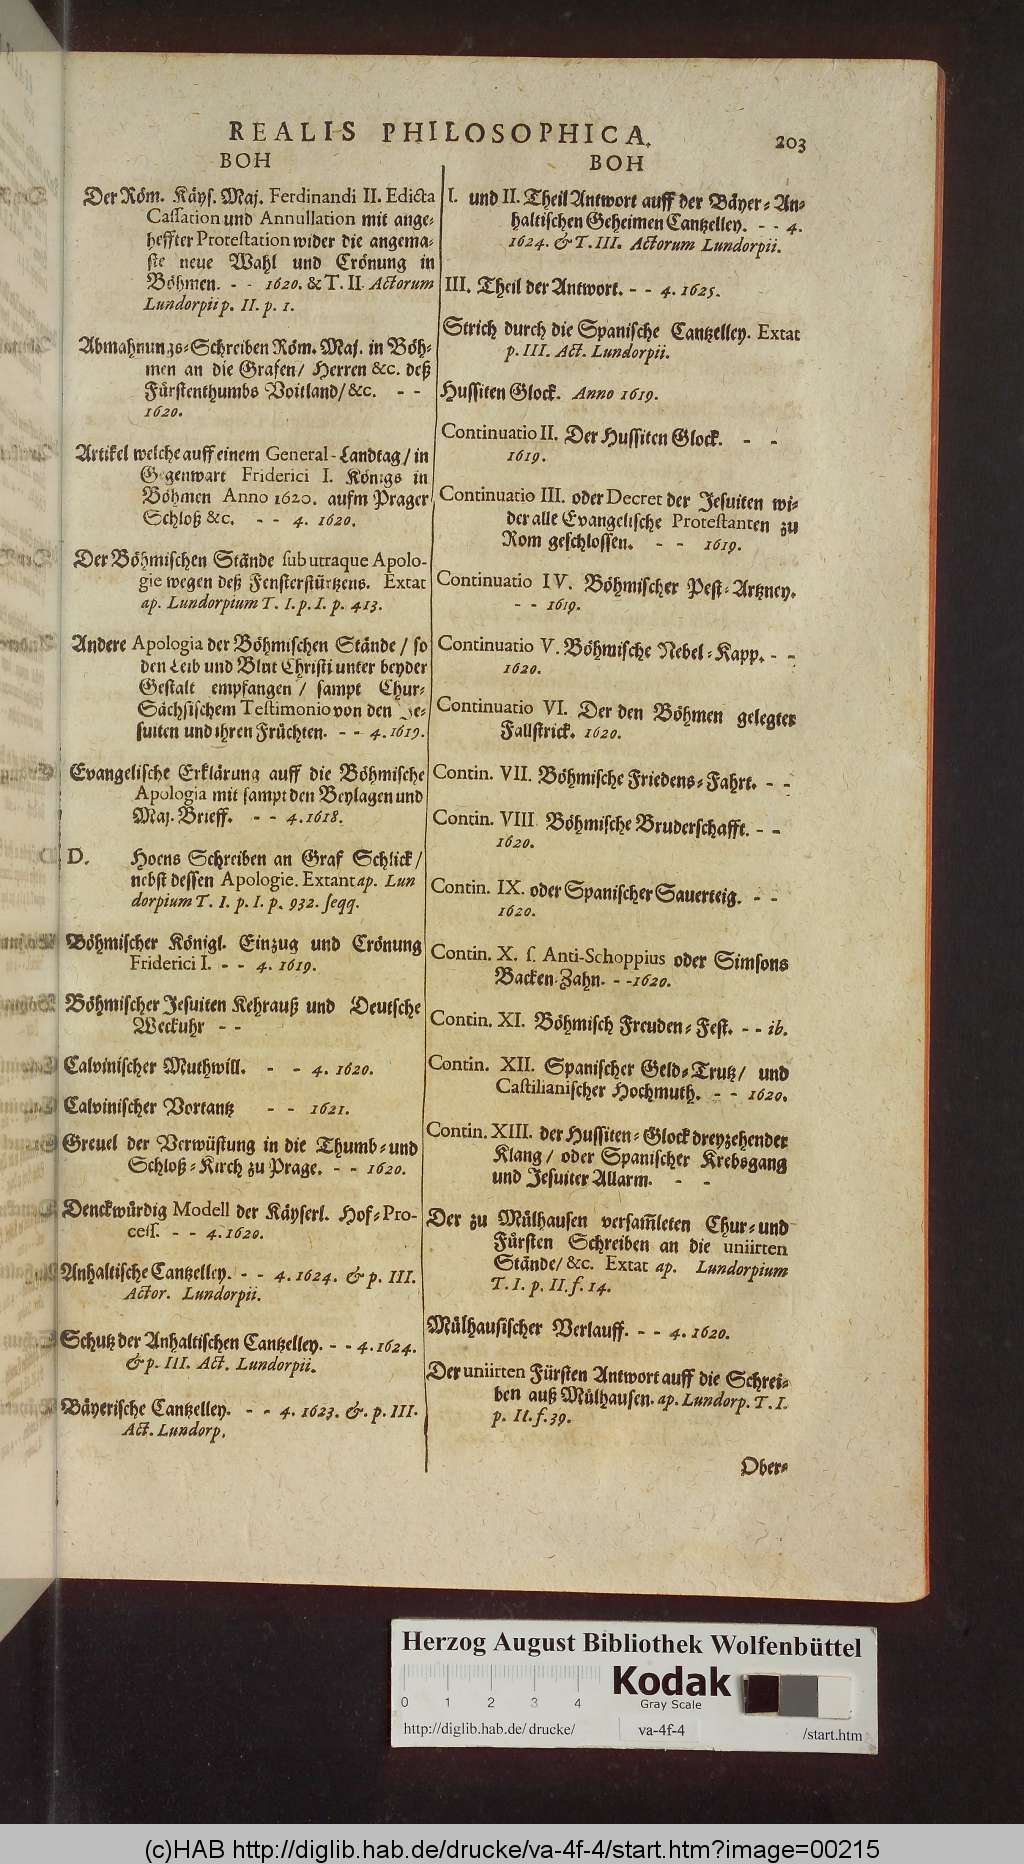 REALIS PHILOSOPHICA.
203
BOH
Der Röm. Käyſ. Maj. Ferdinandi II. Edicta
Caſſation und Annullation mit ange-
heffter Proteſtation wider die angema-
ſte neue Wahl und Crönung in
Böhmen. - - 1620. & T. II. Actorum
Lundorpii p. II. p. 1.
Abmahnungs-Schreiben Röm. Maj. in Böh-
men an die Grafen/ Herren &c. deß
Fürſtenthumbs Voitland/ &c. - -
1620.
Artikel welche auff einem General-Landtag/ in
Gegenwart Friderici I. Königs in
Böhmen Anno 1620. aufm Prager
Schloß &c. - - 4. 1620.
Der Böhmiſchen Stände ſub utraque Apolo-
gie wegen deß Fenſterſtürtzens. Extat
ap. Lundorpium T. I. p. I. p. 413.
Andere Apologia der Böhmiſchen Stände / ſo
den Leib und Blut Chriſti unter beyder
Geſtalt empfangen / ſampt Chur-
Sächſiſchem Teſtimonio von den Je-
ſuiten und ihren Früchten. - - 4. 1619.
Evangeliſche Erklärung auff die Böhmiſche
Apologia mit ſampt den Beylagen und
Maj. Brieff. - - 4. 1618.
D. Hoens Schreiben an Graf Schlick /
nebſt deſſen Apologie. Extant ap. Lun
dorpium T. I. p. I. p. 932. ſeqq.
Böhmiſcher Königl. Einzug und Crönung
Friderici I. - - 4. 1619.
Böhmiſcher Jeſuiten Kehrauß und Deutſche
Weckuhr - -
Calviniſcher Muthwill. - - 4. 1620.
Calviniſcher Vortantz - - 1621.
Greuel der Verwüſtung in die Thumb- und
Schloß-Kirch zu Prage. - - 1620.
Denckwürdig Modell der Käyſerl. Hof-Pro-
ceſſ. - - 4. 1620.
Anhaltiſche Cantzelley. - - 4. 1624. & p. III.
Actor. Lundorpii.
Schutz der Anhaltiſchen Cantzelley. - - 4. 1624.
& p. III. Act. Lundorpii.
Bäyeriſche Cantzelley. - - 4. 1623. &. p. III.
Act. Lundorp.
BOH
I. und II. Theil Antwort auff der Bäyer-An-
haltiſchen Geheimen Cantzelley. - - 4.
1624. & T. III. Actorum Lundorpii.
III. Theil der Antwort. - - 4. 1625.
Strich durch die Spaniſche Cantzelley. Extat
p. III. Act. Lundorpii.
Huſſiten Glock. Anno 1619.
Continuatio II. Der Huſſiten Glock. - -
1619.
Continuatio III. oder Decret der Jeſuiten wi-
der alle Evangeliſche Proteſtanten zu
Rom geſchloſſen. - - 1619.
Continuatio IV. Böhmiſcher Peſt-Artzney.
- - 1619.
Continuatio V. Böhmiſche Nebel-Kapp. - -
1620.
Continuatio VI. Der den Böhmen gelegter
Fallſtrick. 1620.
Contin. VII. Böhmiſche Friedens-Fahrt. - -
Contin. VIII Böhmiſche Bruderſchafft. - -
1620.
Contin. IX. oder Spaniſcher Sauerteig. - -
1620.
Contin. X. ſ. Anti-Schoppius oder Simſons
Backen-Zahn. - - 1620.
Contin. XI. Böhmiſch Freuden-Feſt. - - ib.
Contin. XII. Spaniſcher Geld-Trutz/ und
Caſtilianiſcher Hochmuth. - - 1620.
Contin. XIII. der Huſſiten-Glock dreyzehender
Klang/ oder Spaniſcher Krebsgang
und Jeſuiter Allarm. - -
Der zu Mülhauſen verſam̃leten Chur- und
Fürſten Schreiben an die uniirten
Stände/ &c. Extat ap. Lundorpium
T. I. p. II. f. 14.
Mülhauſiſcher Verlauff. - - 4. 1620.
Der uniirten Fürſten Antwort auff die Schrei-
ben auß Mülhauſen. ap. Lundorp. T. I.
p. II. f. 39.
Ober-
Herzog August Bibliothek Wolfenbüttel
0 1 2 3 4
Kodak
Gray Scale
http://diglib.hab.de/drucke/ va-4f-4 /start.htm
(c)HAB http://diglib.hab.de/drucke/va-4f-4/start.htm?image=00215